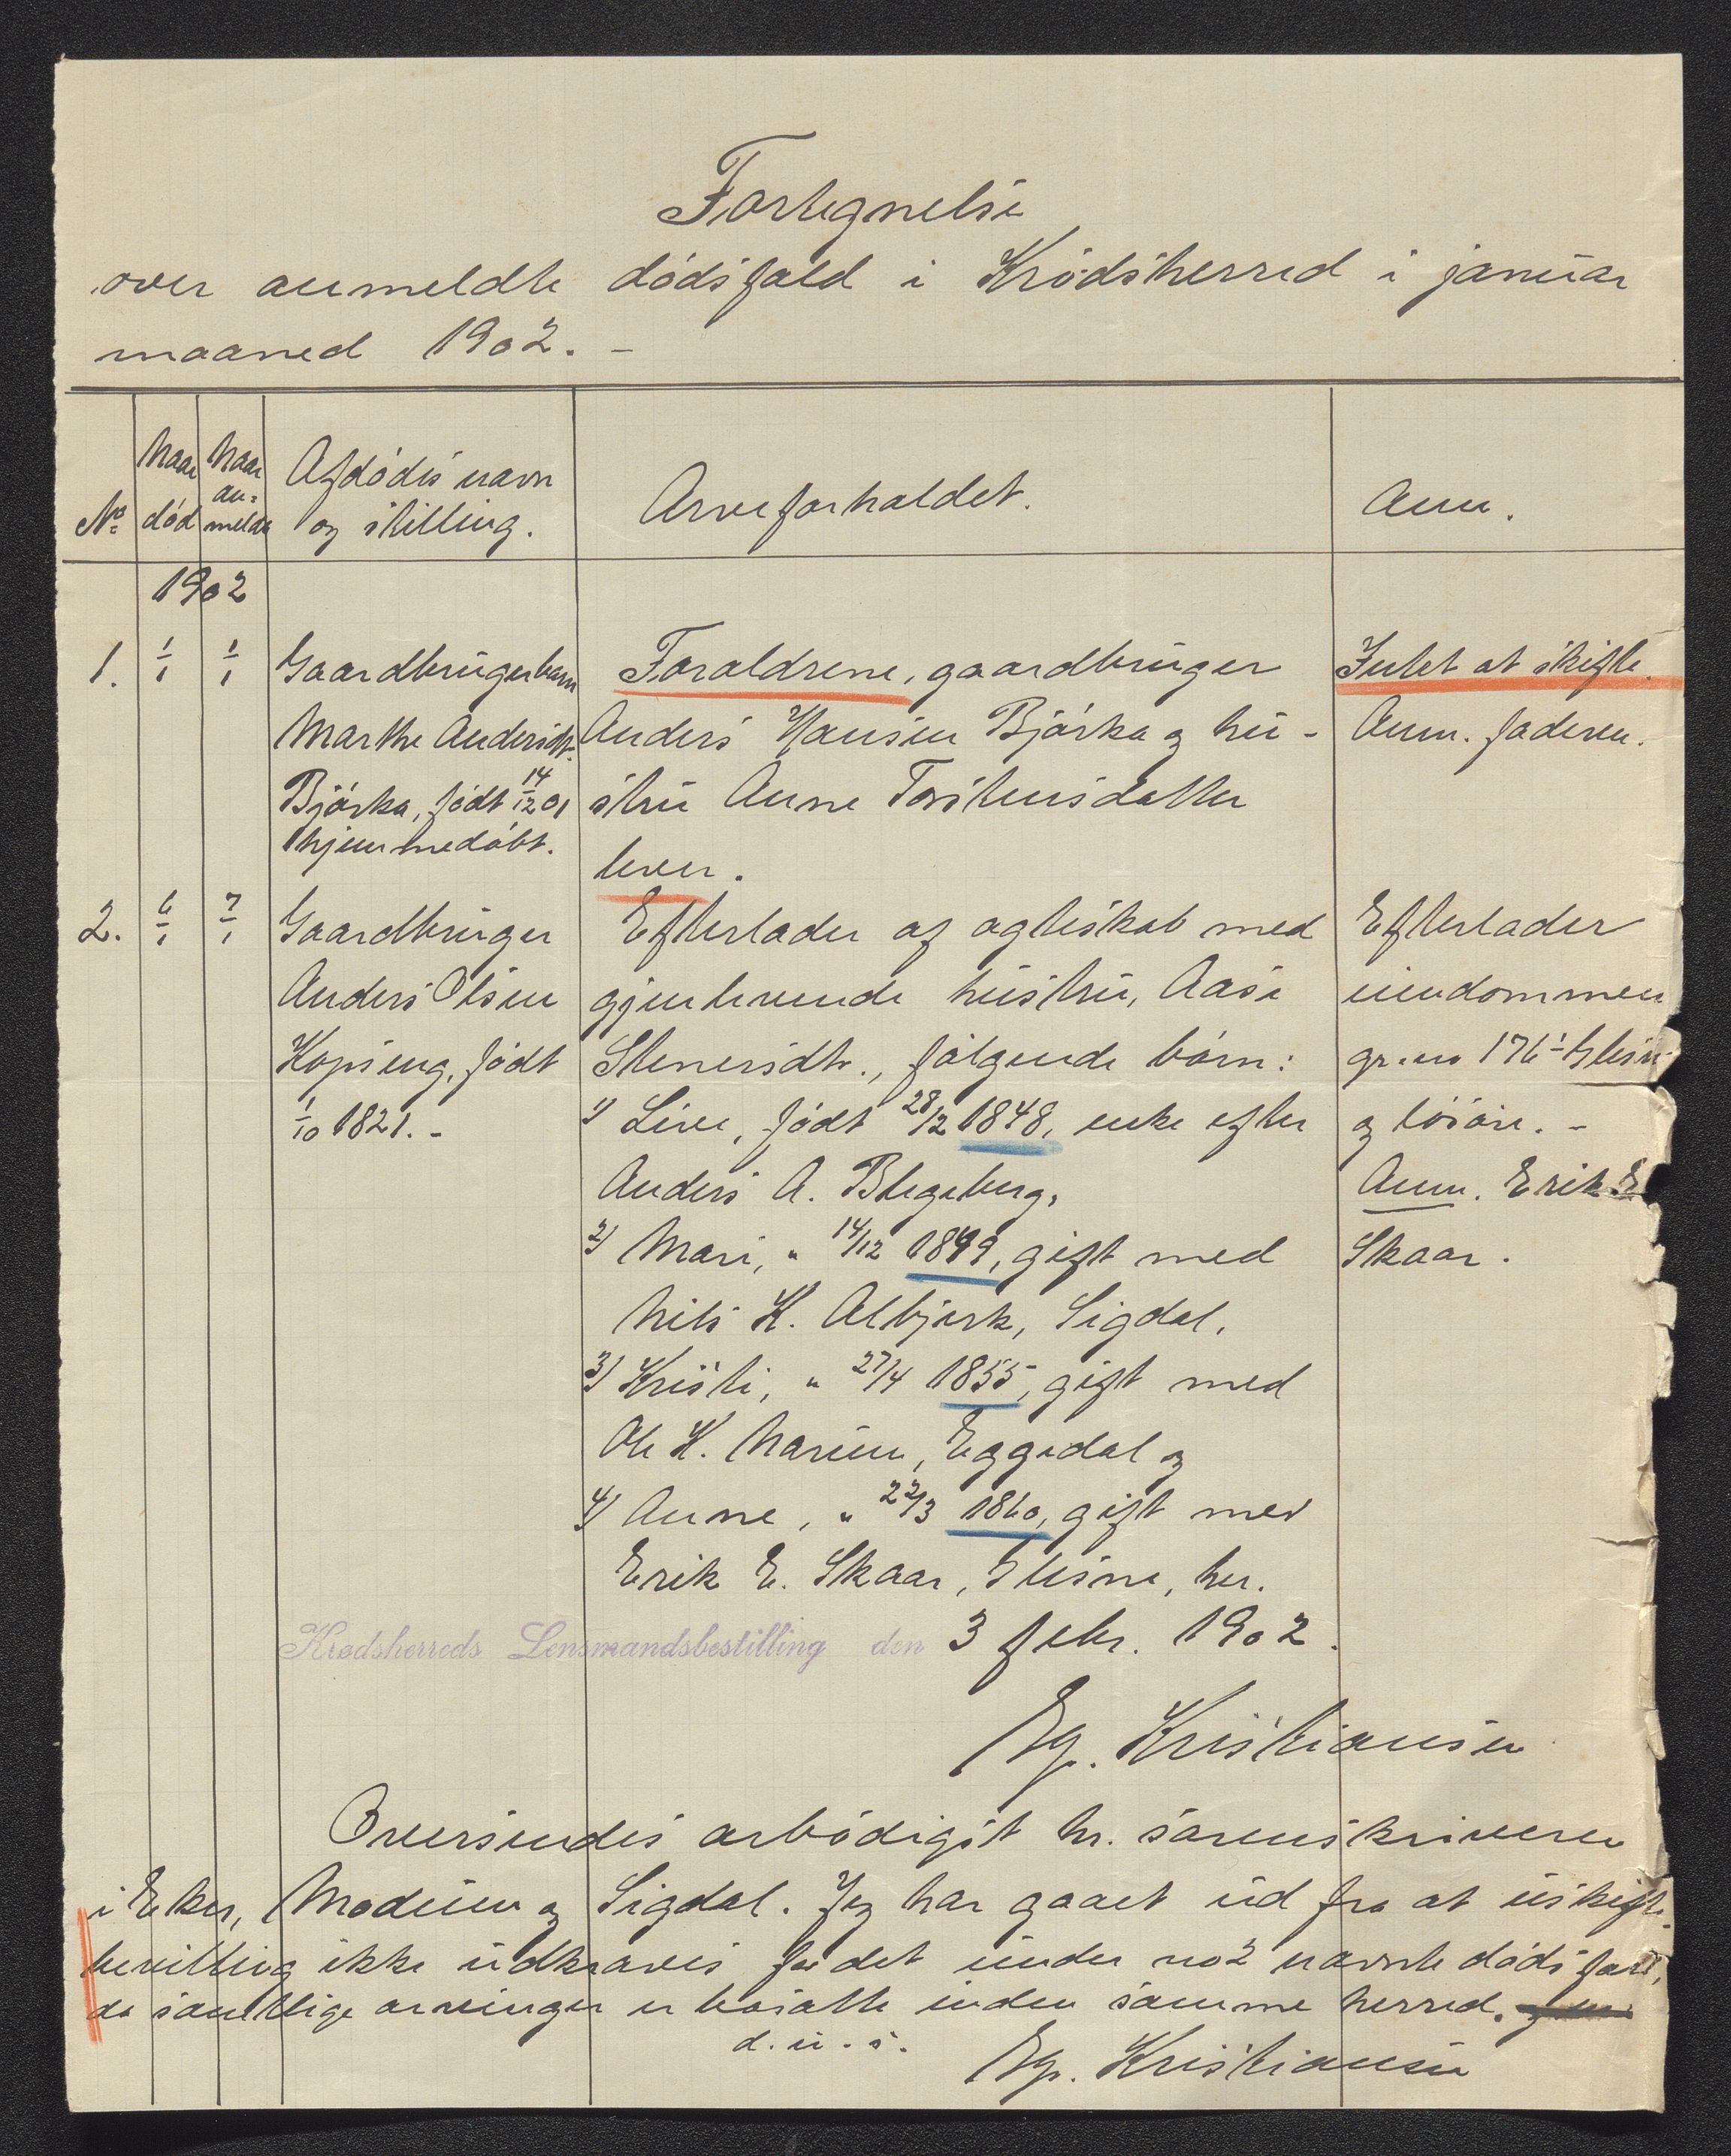 Fortegnelse
over anmeldte dødsfald i Krødsherred i januar
maaned 1902. -
No
Naar død
Naar anmeldt
Afdødes navn og stilling.
Arveforholdet.
Anm.
1902
1. 1/1 1/1
Gaardbrugerbarn
Marthe Andersdt.
Bjørka, født 14/12 01
hjemmedøbt.
Forældrene, gaardbruger
Anders Hansen Bjørka og hu-
stru Anne Torstensdatter
lever.
Intet at skifte.
Anm. faderen.
2. 6/1 7/1
Gaardbruger
Anders Olsen
Kopseng, født
1/10 1821. -
Efterlader af ægteskab med
gjenlevende hustru, Aase
Stenersdtr., følgende børn:
1) Live, født 28/2 1848, enke efter
Anders A. Blegeberg,
2) Mari, " 14/12 1849, gift med
Nils K. Albjerk, Sigdal,
3) Kristi, " 27/4 1855, gift med
Ole K. Narum, Eggedal og
4) Anne, " 22/3 1860, gift med
Erik E. Skaar, Glesne, her.
Efterlader
eiendommen
gr. no 176 Glesne
og løsøre. -
Anm. Erik E
Skaar.
Krødsherreds Lensmandsbestilling den 3 febr. 1902.
Eg. Kristiansen
Oversendes ærbødigst hr. sorenskriveren
i Eker, Modum og Sigdal. Jeg har gaaet ud fra at uskifte-
bevilling ikke udkræves for det under no 2 nævnte dødsfald,
da samtlige arvinger er bosatte inden samme herred.
d. u. s.
Eg. Kristiansen